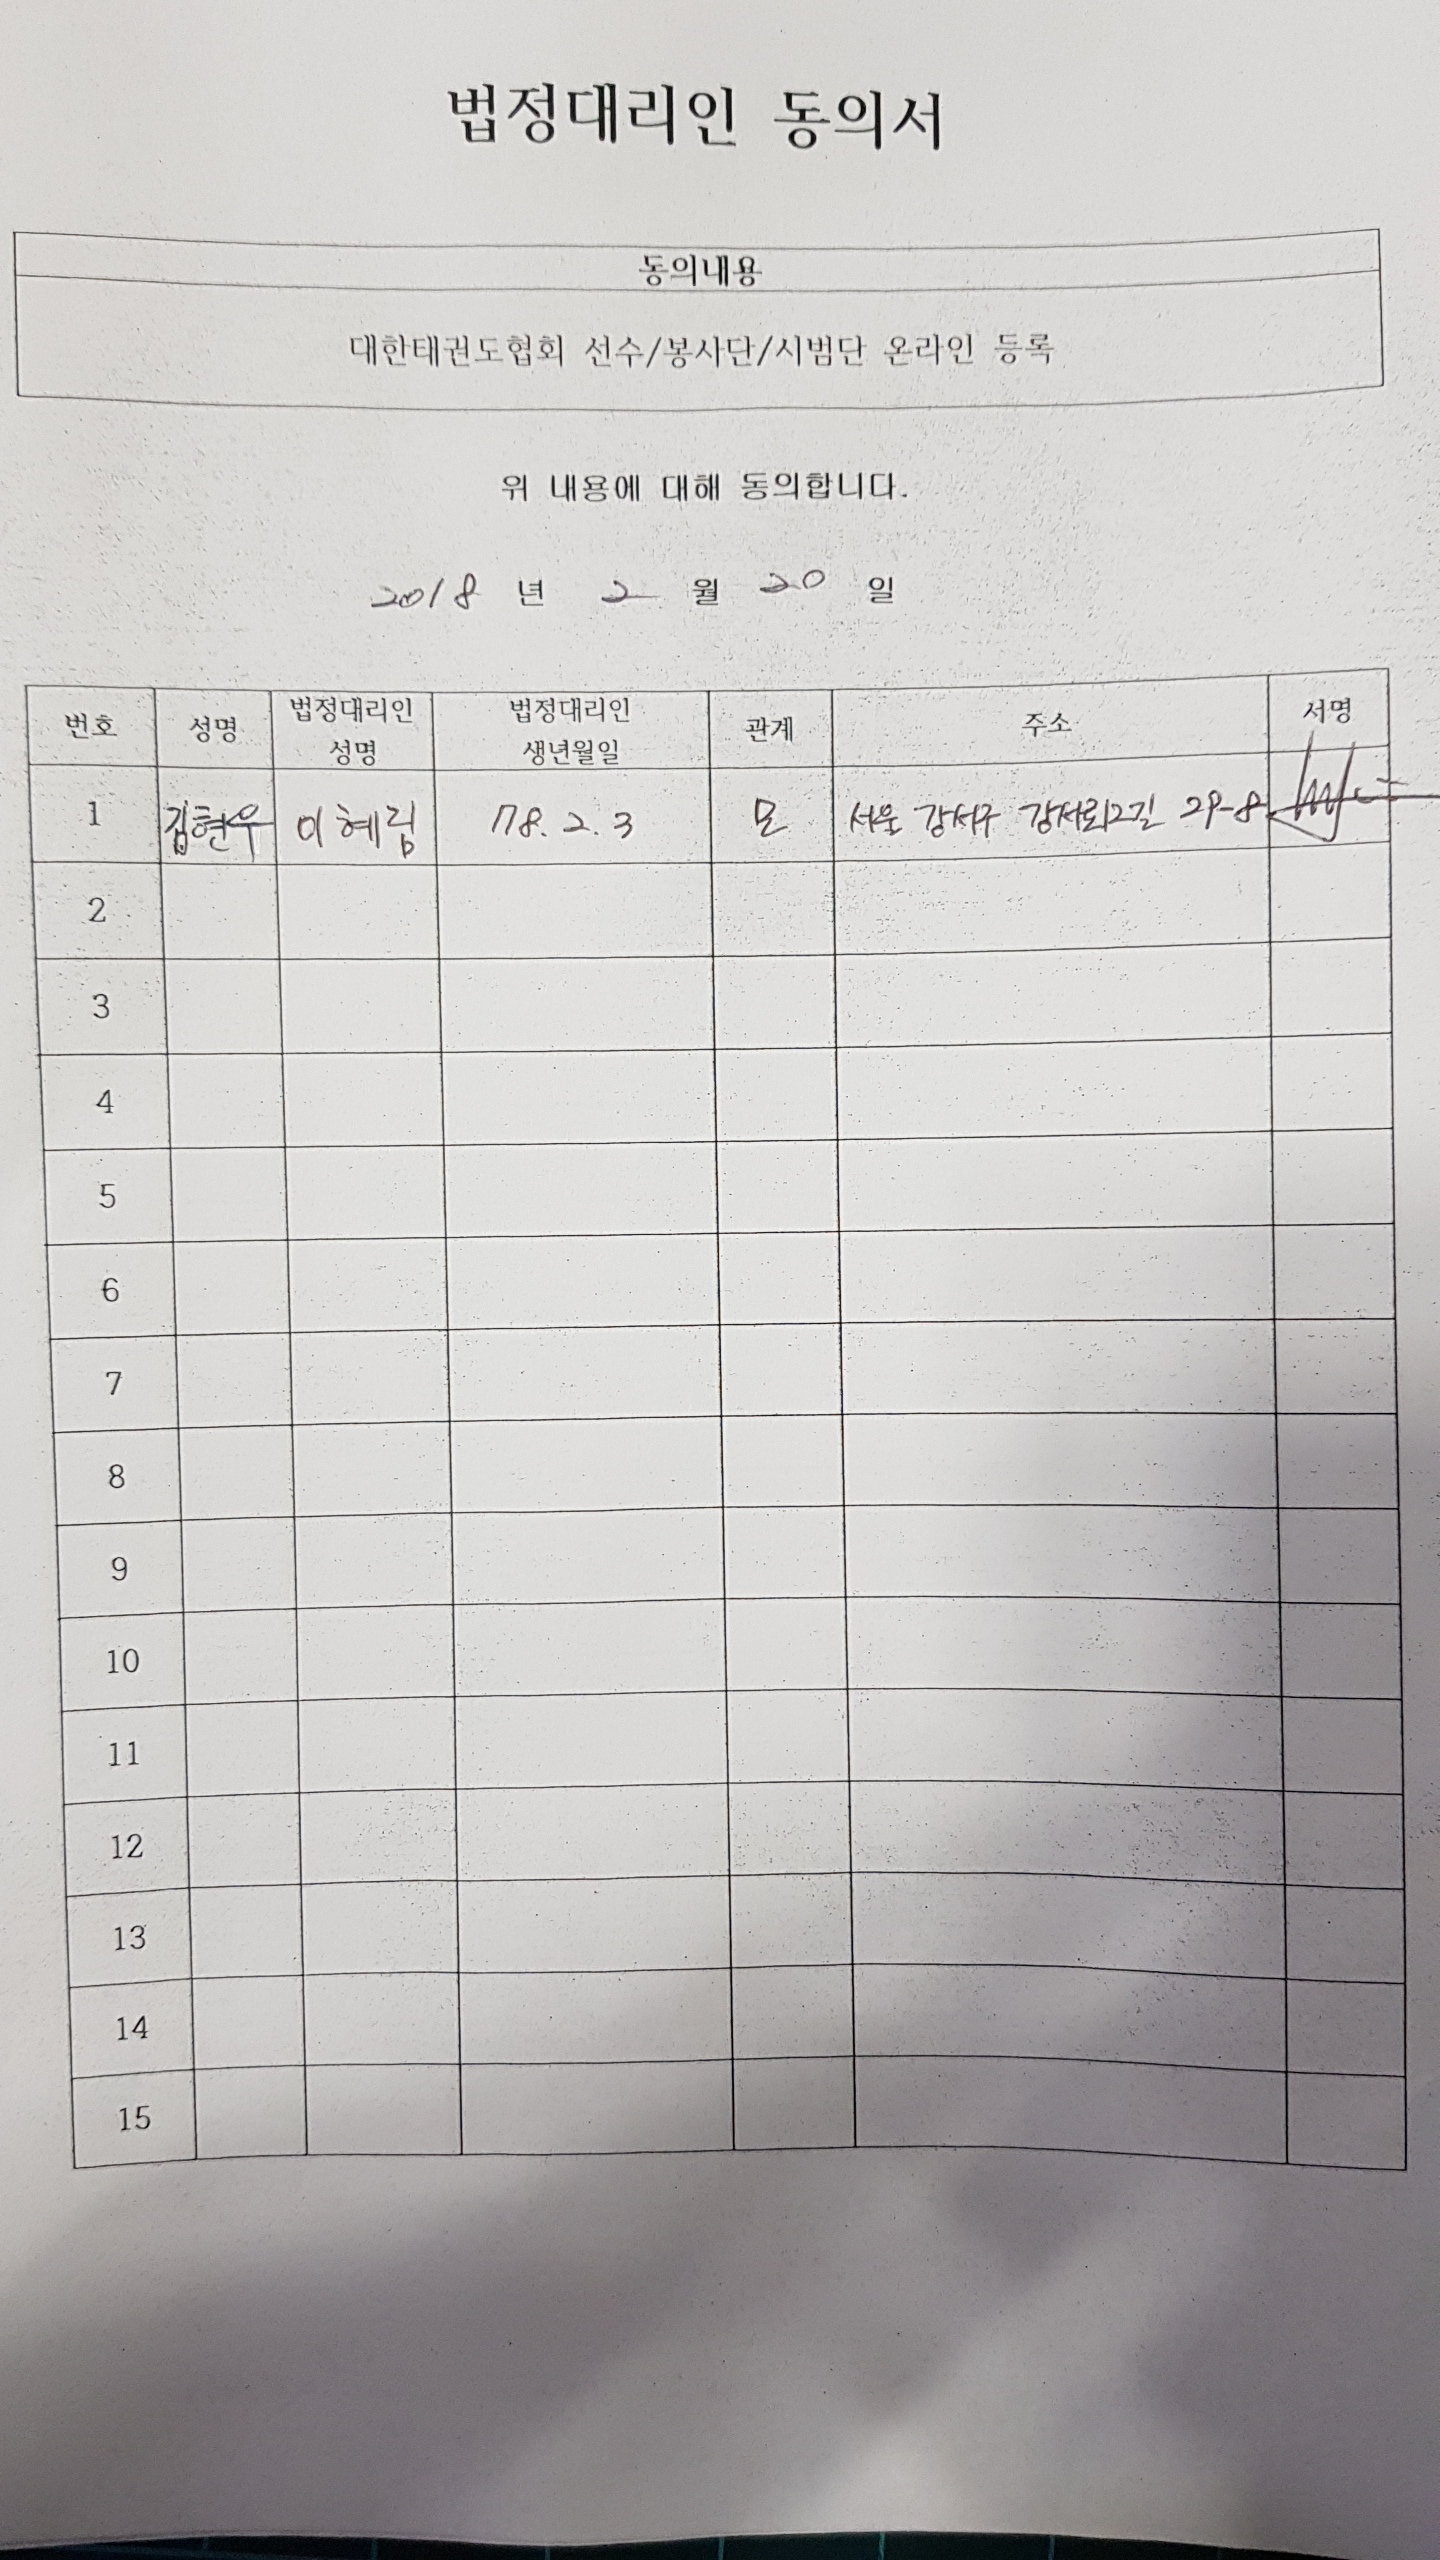 법정대리인 동의서
동의내용
대한태권도협회 선수/봉사단/시범단 온라인 등록
위 내용에 대해 동의합니다.
2018 년 2 월 20 일
번호 성명 법정대리인 성명 법정대리인 생년월일 관계 주소 서명
1 김현우 이혜림 78. 2. 3 모 서울 강서구 29-8
2
3
4
5
6
7
8
9
10
11
12
13
14
15